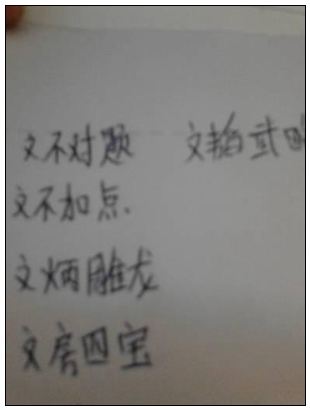 文不对题 文韬武
文不加点
文炳雕龙
文房四宝